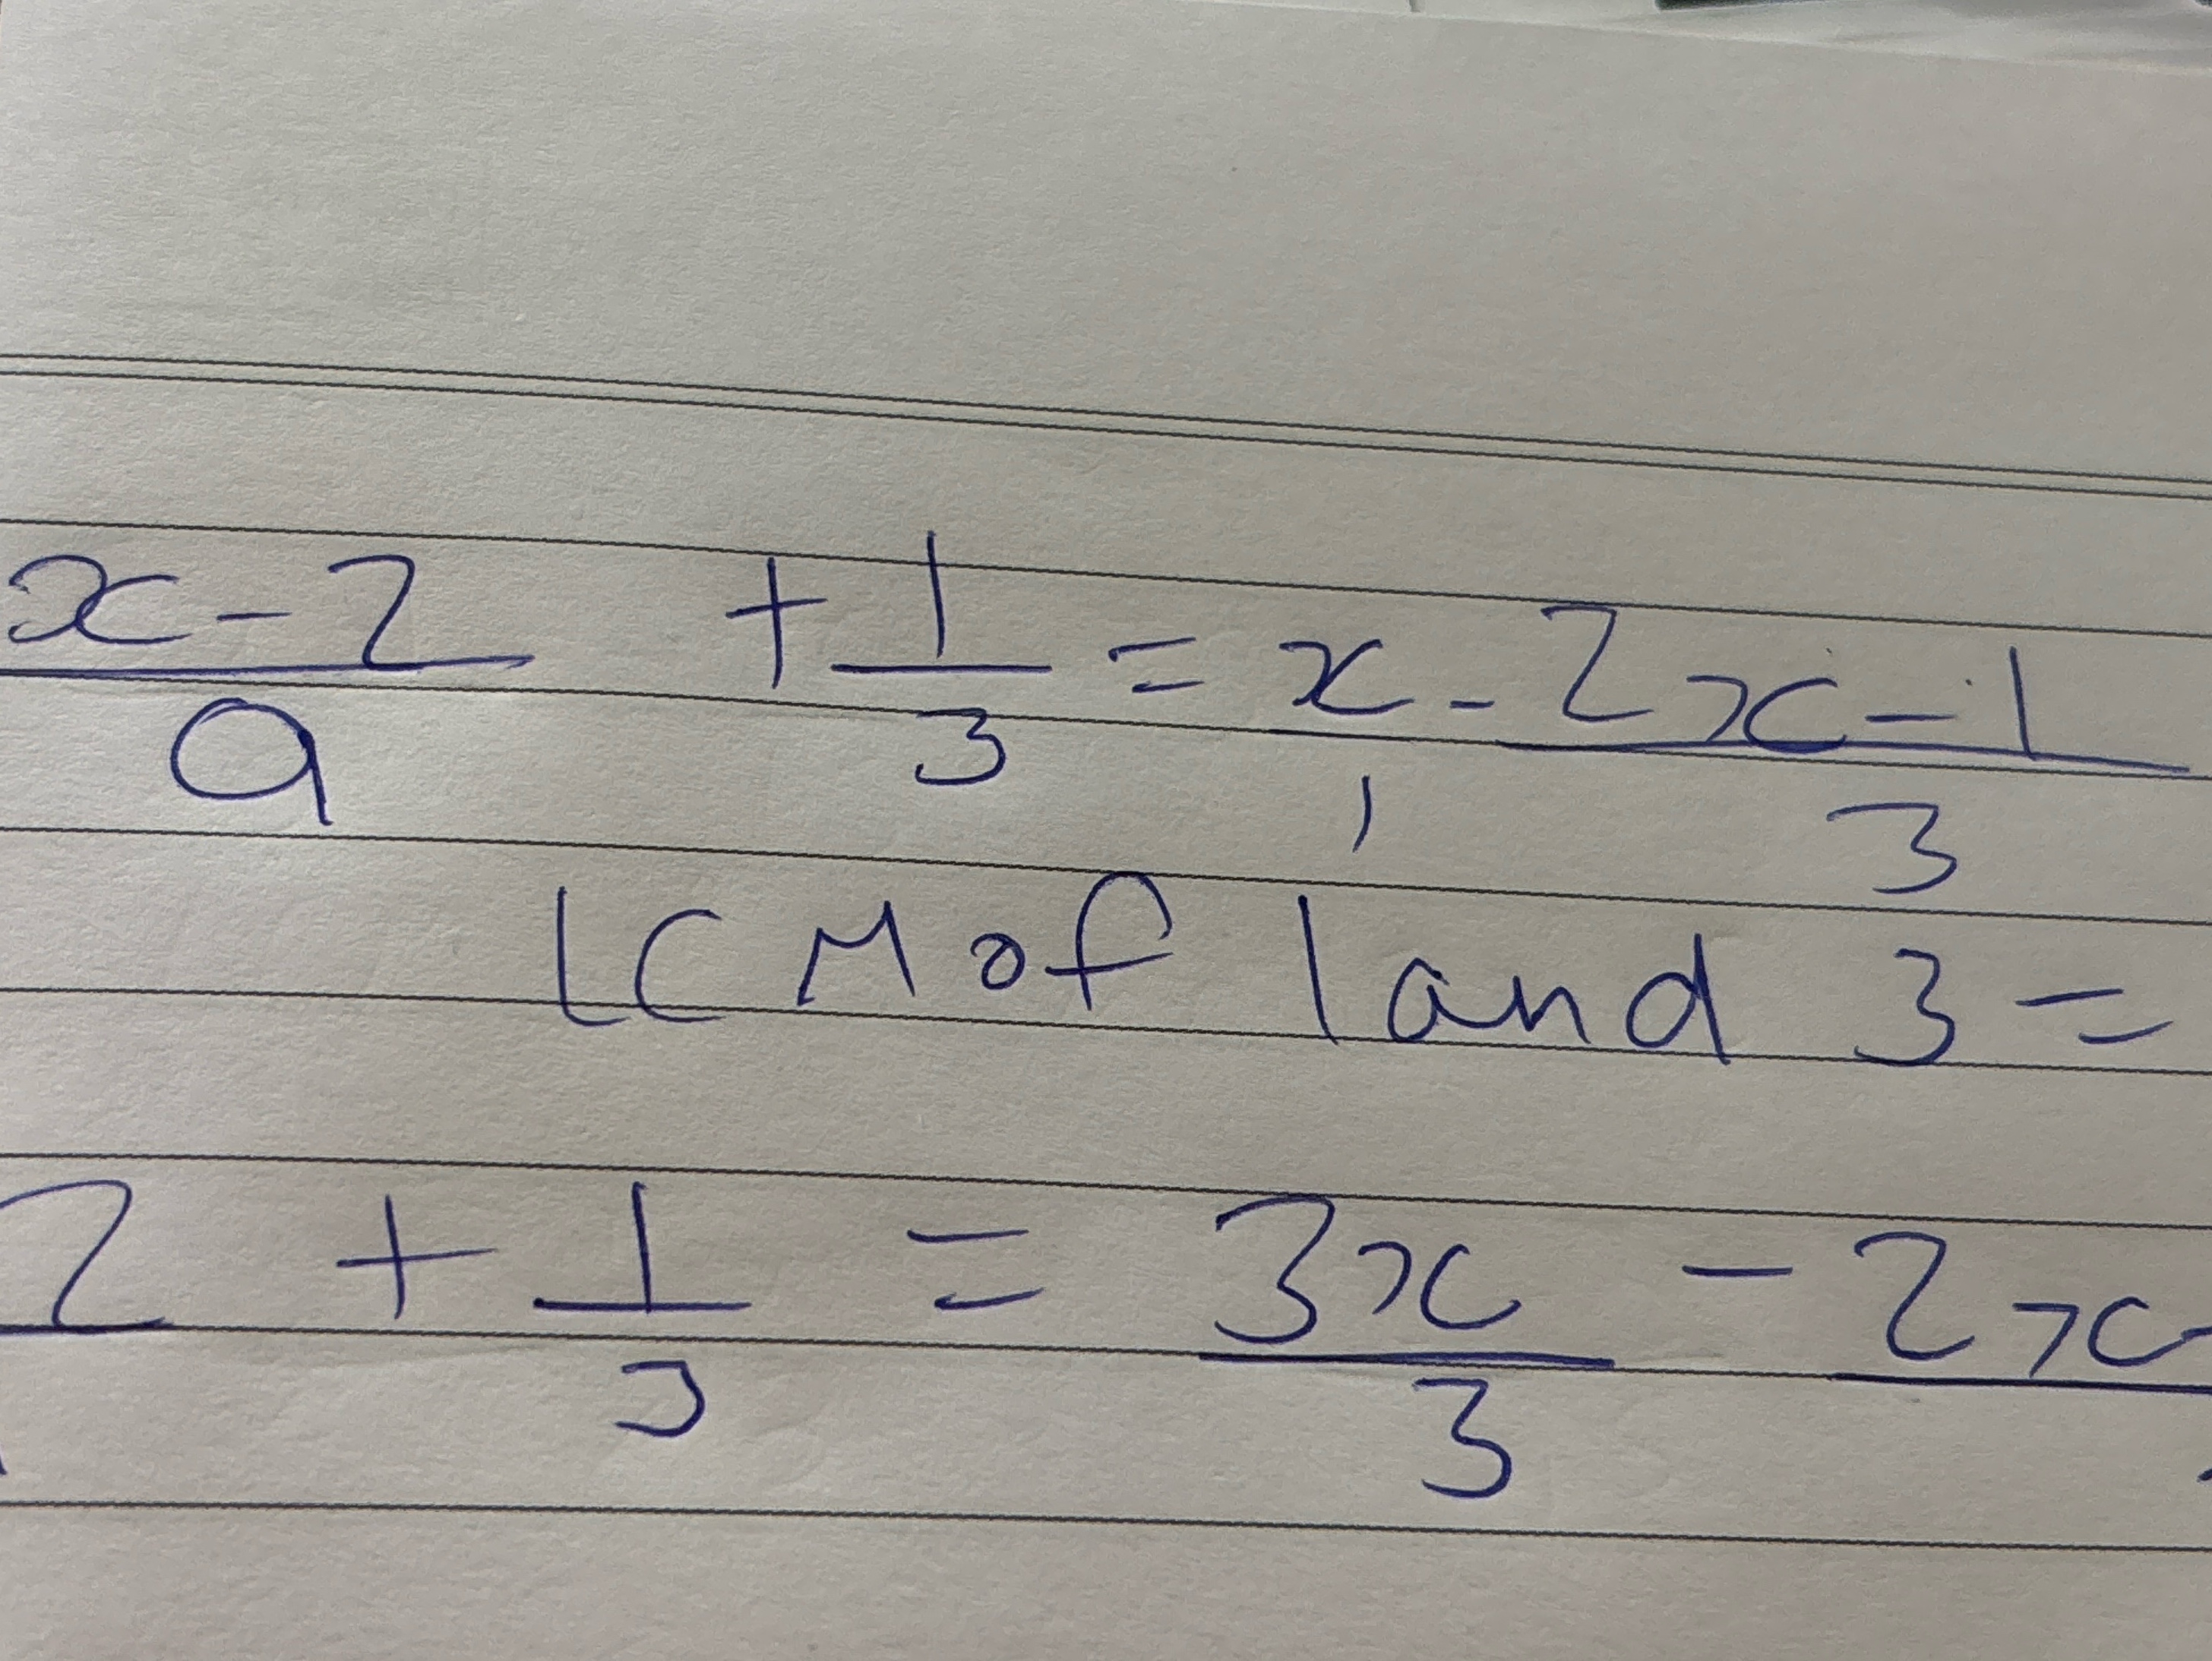 x-2/9 + 1/3 = x/1 - 2x-1/3
LCM of 1 and 3 =
2 + 1/3 = 3x/3 - 2x